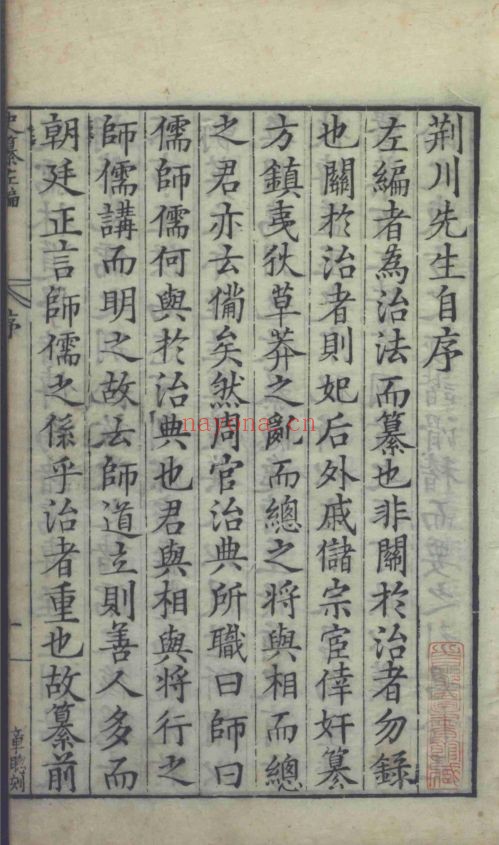 荆川先生自序
左編者為治法而纂也非關於治者勿錄
也關於治者則妃后外戚儲宗宦倖奸簒
方鎮夷狄草莽之亂而總之將與相而總
之君亦云備矣然周官治典所職曰師曰
儒師儒何與於治典也君與相與將行之
師儒講而明之故云師道立則善人多而
朝廷正言師儒之係乎治者重也故纂前
史纂左編
序
一
章聰刻
nayona.cn